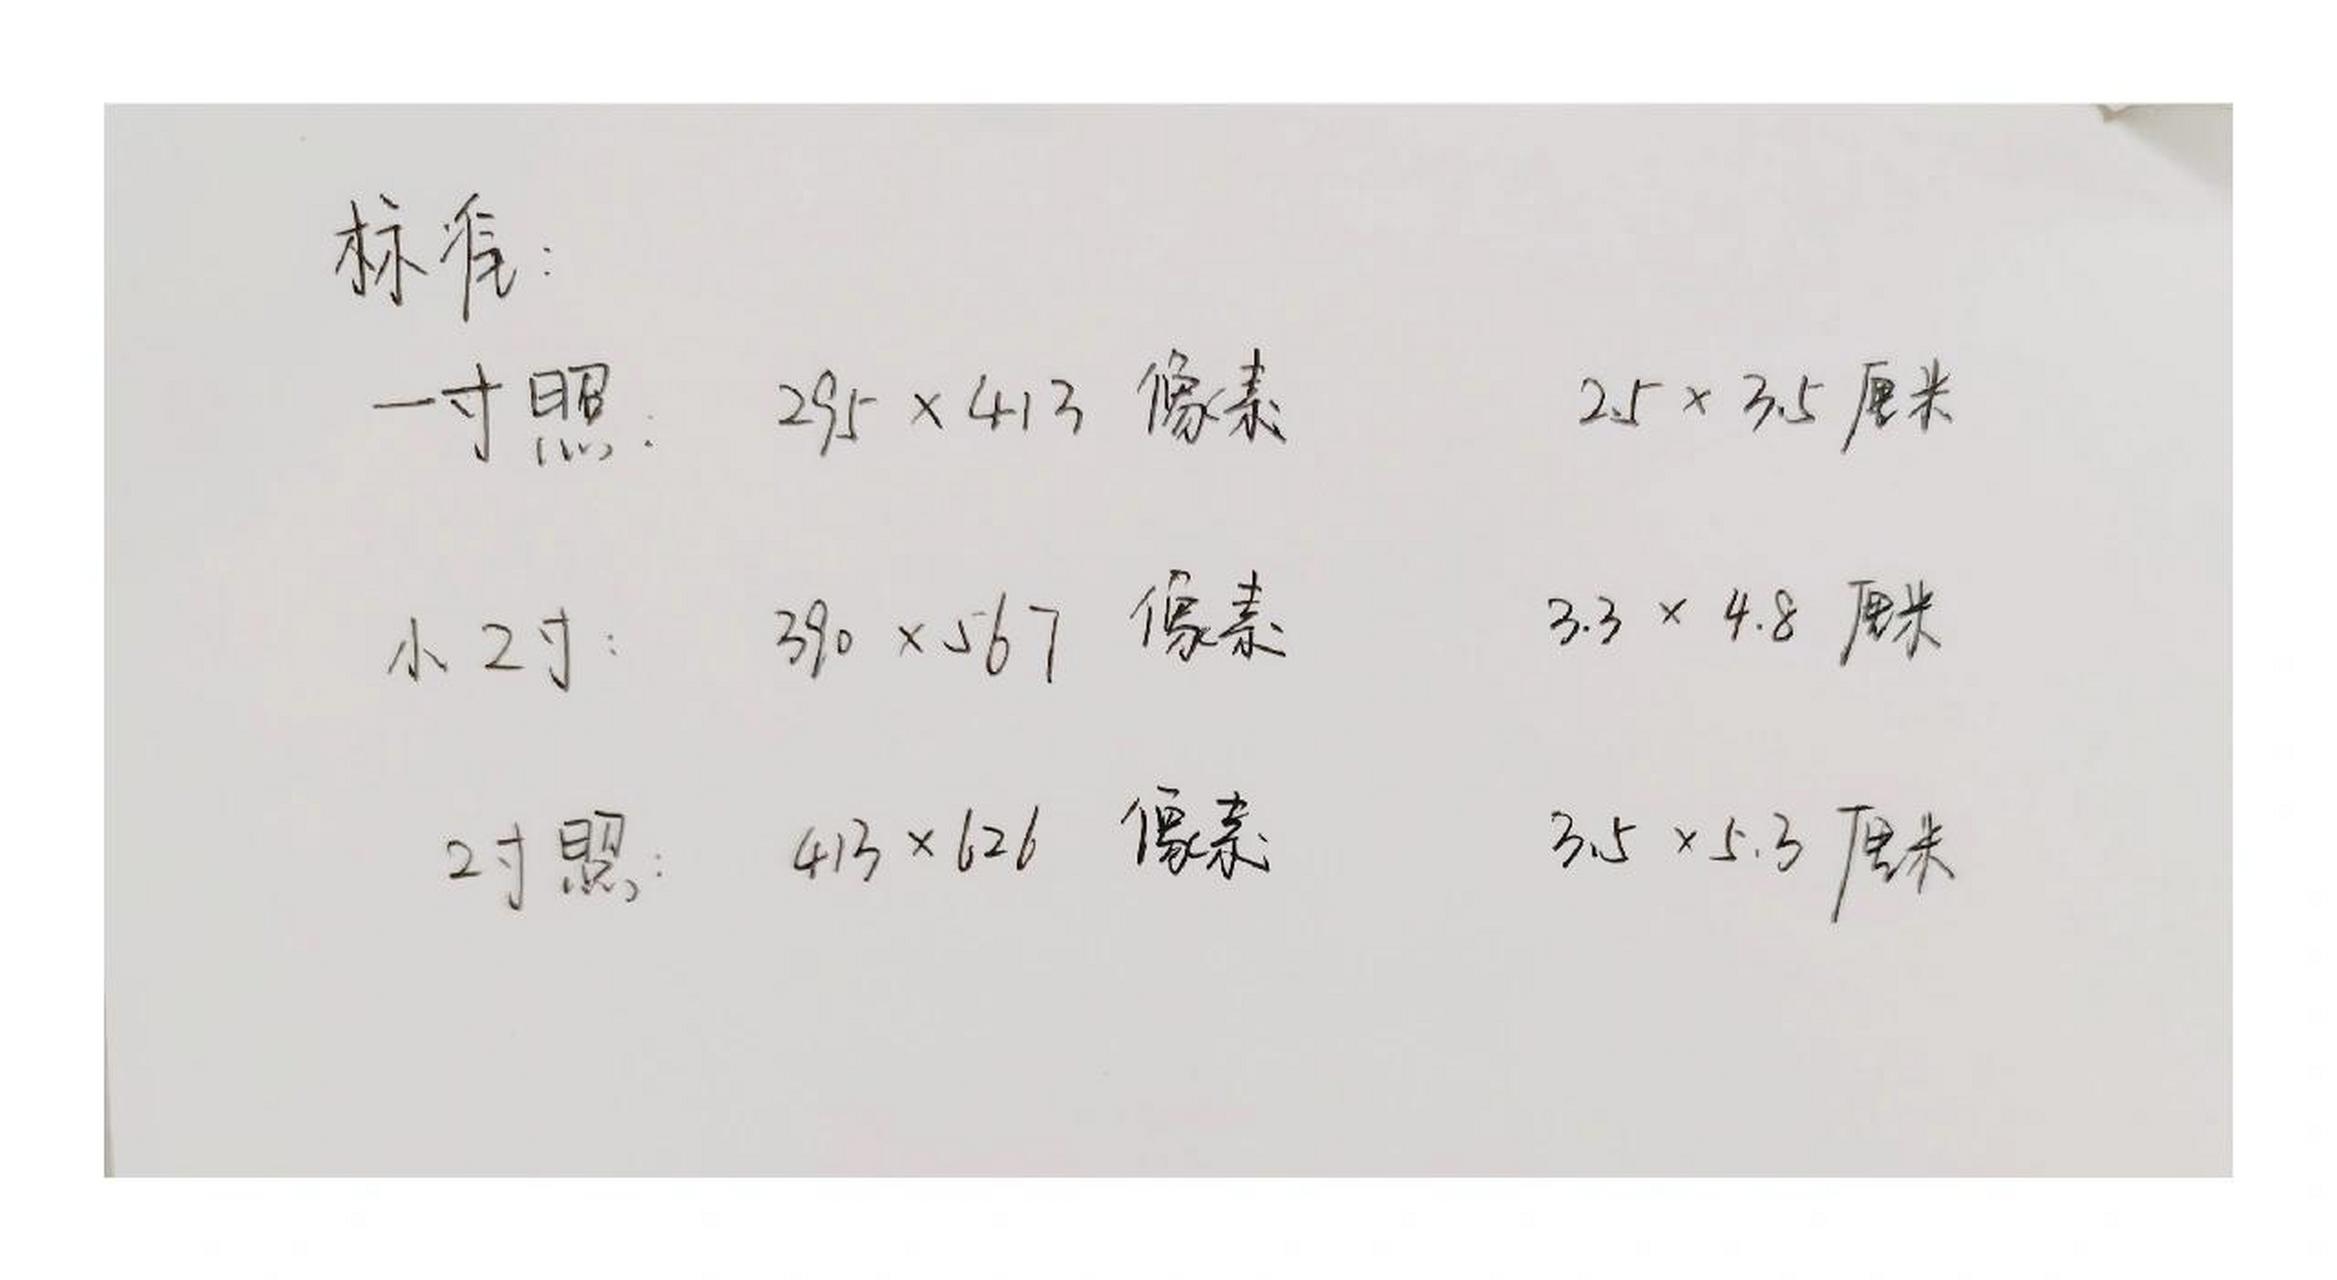 标准:
一寸照: 295×413 像素 2.5×3.5 厘米
小2寸: 390×567 像素 3.3×4.8 厘米
2寸照: 413×626 像素 3.5×5.3 厘米